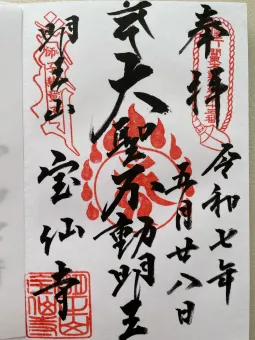 奉拝
令和七年
五月廿八日
大聖不動明王
明王山
宝仙寺